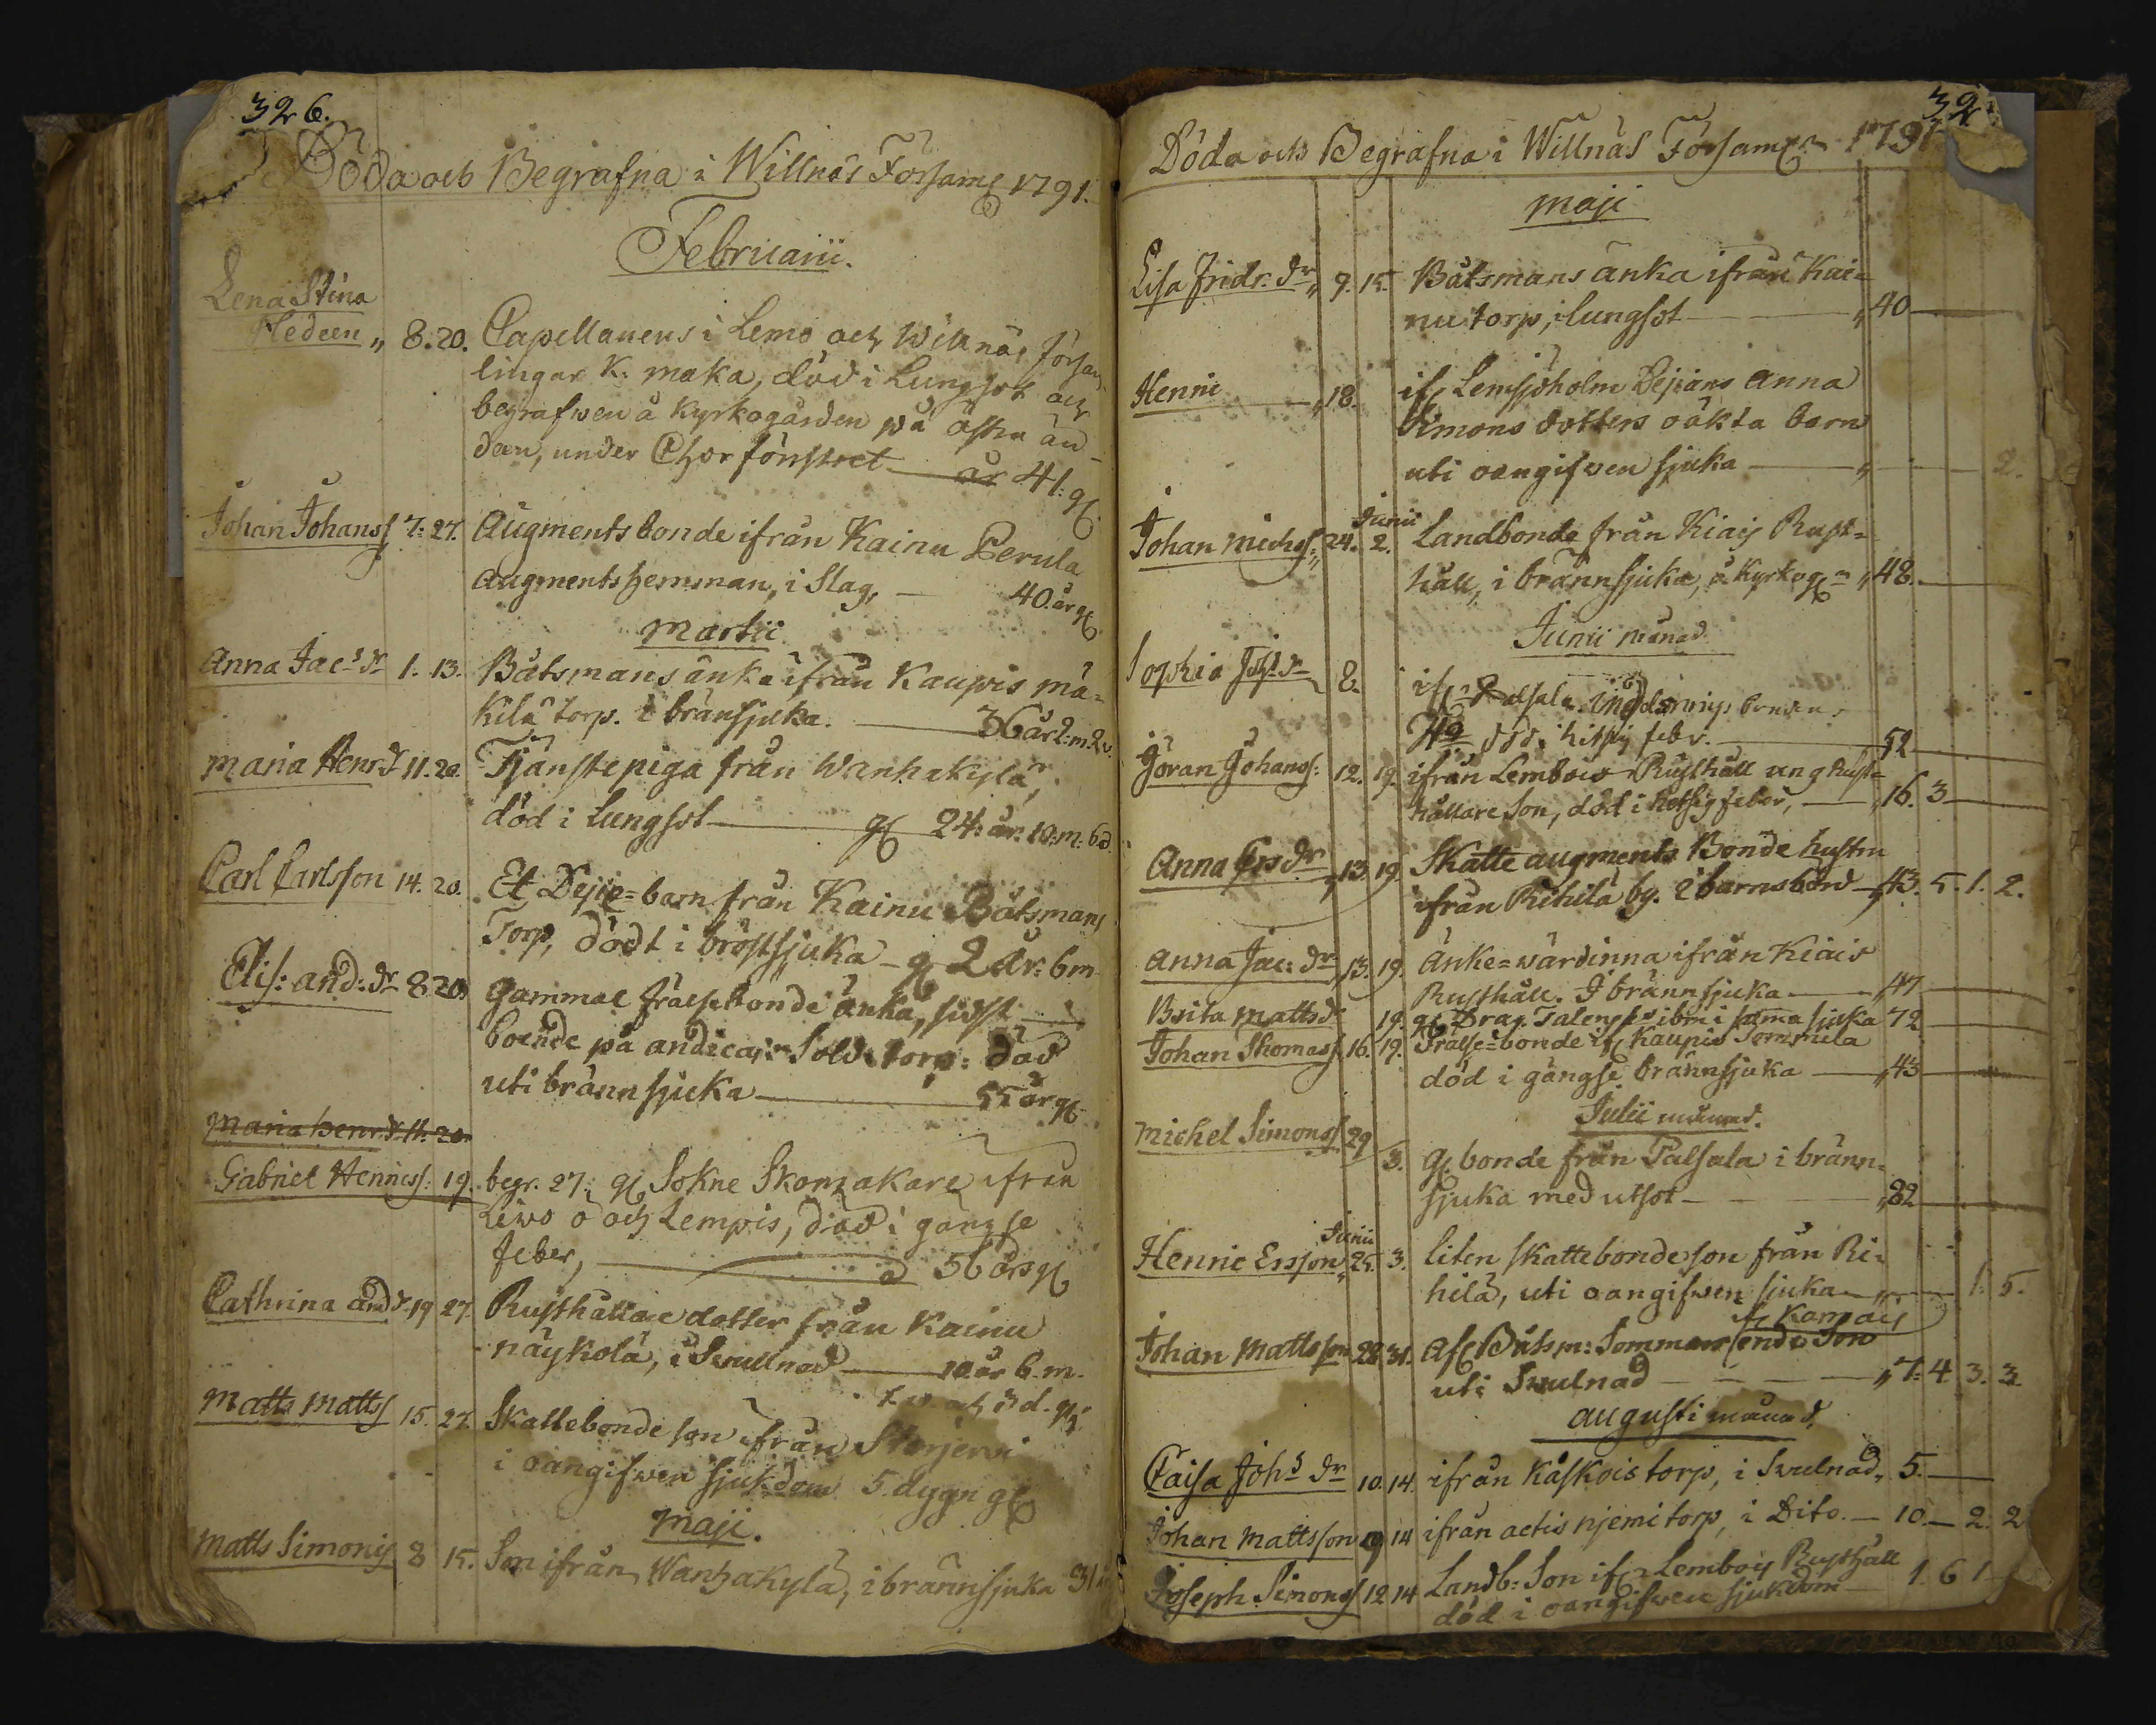 326.
Döda och Begrafna i Willnäs Församl 1791.
Februarii.
Lena Stina
Hedeen „ 8. 20. Capellanens i Lemo och Willnäs försam-
lingar K. maka, död i Lungsot och
begrafwen å Kyrkogården på östra än-
dan, under Chorfönstret år 41. gl
Johan Johanss 7. 27. Augmentsbonde ifrån Kainu Perula
augmentshemman, i Slag, 40 år gl
Martii
Anna Jacs dr 1. 13. Båtsmans änka ifrån Kaupis mä-
kilä torp. i bränsjuka. 36 år 2. m. 2 v.
Maria Henr dr 11. 20. Tjänstepiga från Wanhakylä,
död i Lungsot gl 24 år. 10. m. 6 d.
Carl Carlsson 14. 20. Et Dejie-barn från Kainu Båtsmans
Torp, dödt i bröstsjuka gl 2 år. 6 m
Elis: and: dr 8 20 Gammal frälsebonde änka, sidst
boende på andicais Sold. torp. död
uti brännsjuka 55 år gl
Maria henr dr 11. 20.
Gabriel Henricss: 19. begr. 27. gl Sokne Skomakare ifrån
Liwo o och Lempis, död i gångse
feber, 56 års gl
Cathrina and dr 19 27. Rusthållare dotter från Kainu
näykolä, i Swullnad 10 år 6 m.
1. w. och 3 d. gl
Matts Matts 15. 27. Skattebonde son ifrån Storjerwi
i oangifwen sjukdom 5 dygn gl
Maji.
Matts Simonis 8 15. Son ifrån Wanhakylä, i brännsjuka 31
32
Döda och Begrafna i Willnäs Församl 1791
Maji
Lisa Fridr. dr „ 9. 15. Båtsmans änka ifrån Kai-
nu torp, i lungsot „ 40
Henric „ 18. ifr Lemsjöholm Dejjans Anna
Simons dotters oäkta barn
uti oangifwen sjuka „ 2.
Junii
Johan Michs: „ 24. 2. Landbonde från Kiais Rust-
håll, i brännsjuka, å Kyrkogl „ 48.
Junii månad
Sophia Joh. dr 8. bondens
död, i hitsig febr. 52
Göran Johanss: 12. 19. ifrån Lembois Rusthåll ung Rust-
hållare Son, död i hetsig feber, „ 16. 3
Anna Ers dr „ 13. 19. Skatte augments Bonde hustru
ifrån Rihilä by. i barnsbörd „ 43. 5. 1. 2.
Anna Jac: dr „ 13. 19. Änke-wärdinna ifrån Kiais
Rusthåll. I brännsjuka „ 47
Brita Matts dr 19. gl Drag. ibm i samma sjuka 72
Johan Thomass 16. 19. Frälse-bonde ifr Kaupis Tommila
död i gångse brännsjuka „ 43
Julii månad.
Michel Simons 29 3. gl. bonde från Palsala i bränn-
sjuka med utsot „ 82
Junii
Henric Ersson „ 25. 3. liten skattebonde son från Ri-
hilä, uti oangifwen sjuka „ 1. 5.
Johan Mattsson 28 31. Afl Båtsm: Sommars ende Son
uti Swulnad „ 7. 4 3. 3.
augusti månad.
Caisa Johs dr 10. 14. ifrån Kåskois torp, i Swulnad „ 5.
Johan Mattsson 10 14 ifrån actis njemi torp, i Dito. 10. 2. 2
Joseph Simons 12 14 Landb: Son ifr Lembois Rusthåll
död i oangifwen sjukdom 1 6 1